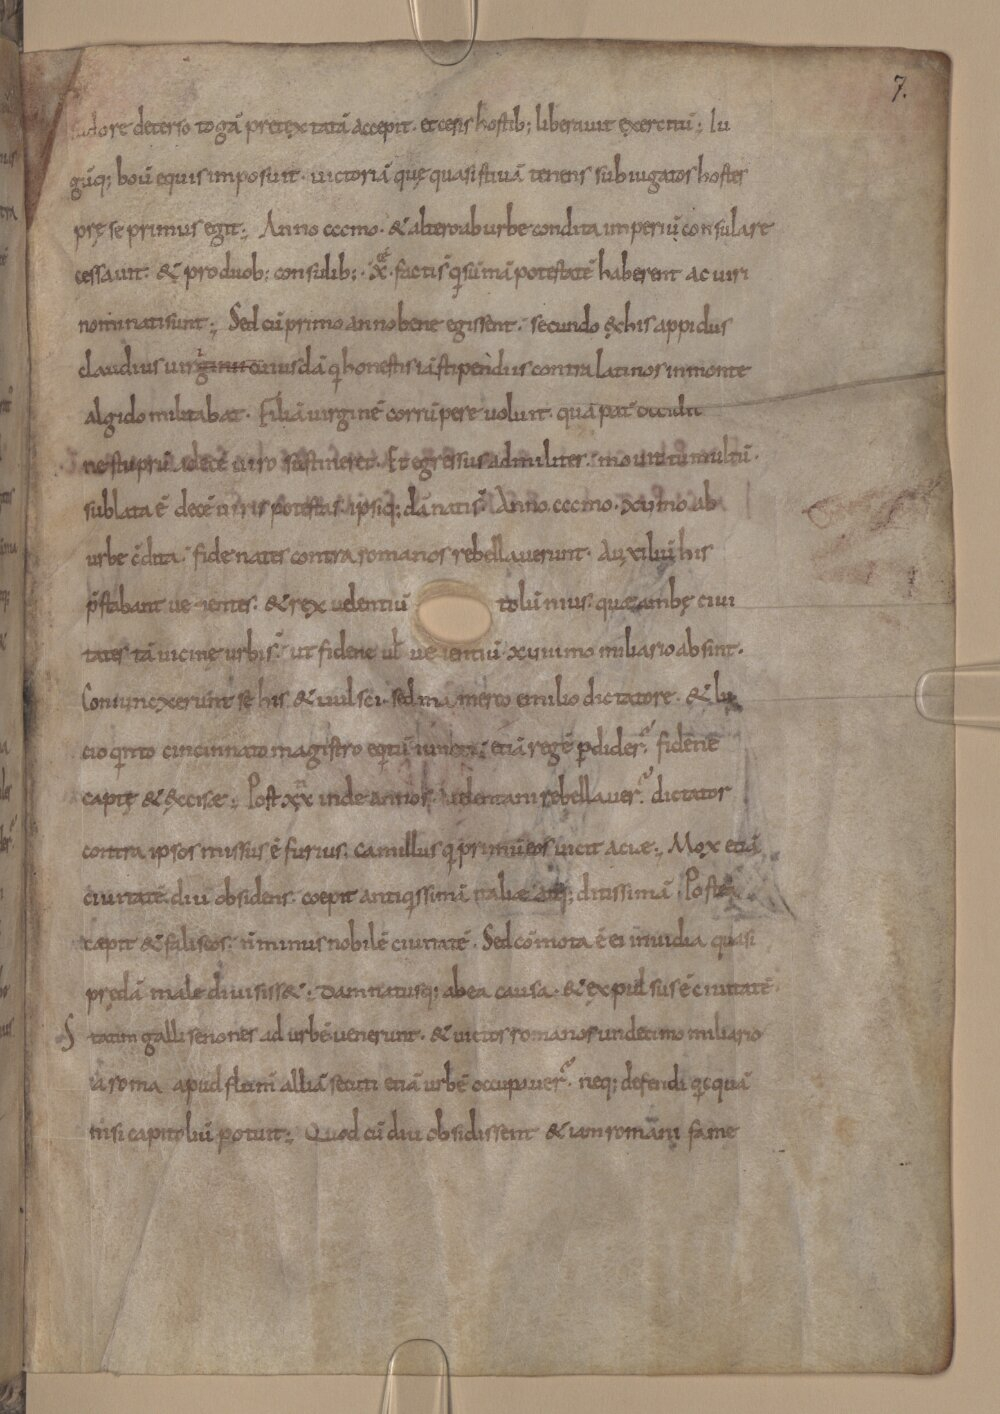 7.
sudore deterso togā pretęxtatā accepit· et cęsis hostib; liberauit exercitū; Iu
gūq; boū equis imposuit· uictoriā quę quasi stiuā tenens subiugatos hostes
prę se primus egit; Anno cccmo· & altero ab urbe condita imperiū consulare
cessauit· & pro duob; consulib; ·x̄· factis q sūmā potestatē haberent ac uiri
nominati sunt; Sed cū primo anno bene egissent· secundo ex his appidus
claudius uirginii cuiusdā qi honestis iā stipendiis contra latinos in monte
algido militabat· Filiā uirginē corrūpere uoluit· quā pat̄ occidit
ne stuprū a decē uiro sustineret· Et egressus ad milites· mouit tumultū·
sublata ē decē uiris potestas· ipsiq; dānati s̄· Anno cccmo· xumo ab
urbe c̄dita· fidenates contra romanos rebellauerunt· Auxiliū his
p̄stabant ueientes· & rex uelentiū tolūnius· quæ ambę ciui
tates tā uicinę urbi s̄· ut fidene ueientiū xuiiimo miliario absint·
Coniuncxerunt se his & uulsci· sed mamerco emilio dictatore· & lu
cio qinto cincinnato magistro eqitū etiā regē pdider̄· fidenę
captę & excisæ; Post xx inde annos· uelentani rebellauer̄· dictator
contra ipsos missus ē furius· camillus q primū eos uicit aciæ; Mox etiā
ciuitatē diu obsidens· coepit antiqissimā italiæ atq; ditissimā· Post eā
cæpit & faliscos· n̄ minus nobilē ciuitatē· Sed cōmota ē ei inuidia quasi
prędā male diuisiss&; damnatusq; ab ea causa· & expulsus ē ciuitatē·
Statim galli senones ad urbē uenerunt· & uictos romanos undecimo miliario
a roma apud flum̄ alliā secuti etiā urbē occupauer̄· neq; defendi qicquā
nisi capitoliū potuit; Quod cū diu obsidissent & iam romani fame